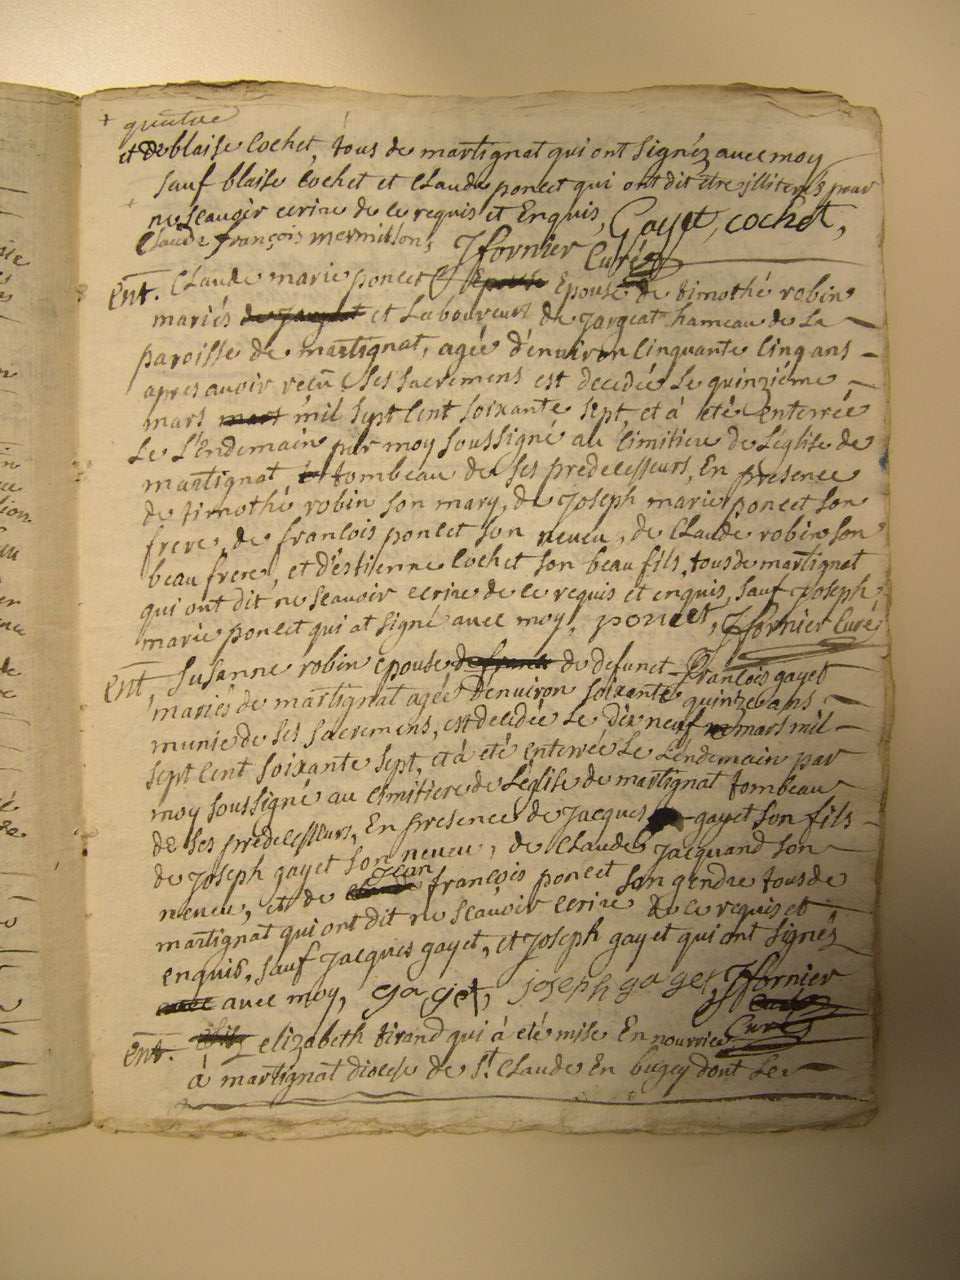 + quatre
et de blaise Cochet, tous de martignat qui ont signéz avec moy
sauf blaise Cochet et Claude poncet qui ont dit être illiterés pour
ne sçauoir ecrire de ce requis et Enquis, Gayet, cochet,
Claude françois mermillon, Jfornier Curé
Ent. Claude marie poncet Epouse de timothé robin
mariés et Laboureurs de Jargeat hameau de La
paroisse de martignat, agée d'enuiron Cinquante Cinq ans
apres auoir reçû Ses sacremens est decedée Le quinziéme
mars mil sept Cent soixante sept, et à été Enterrée
Le L'endemain par moy soussigné au Cimitiere de L'église de
martignat, tombeau de Ses predecesseurs, En presence
de timothé robin son mary, de Joseph marie poncet son
frere, de françois poncet son neueu, de Claude robin son
beau frere, et d'estienne Cochet son beau fils, tous de martignat
qui ont dit ne sçauoir ecrire de ce requis et enquis, sauf Joseph
marie poncet qui at signé auec moy, poncet, Jfornier Curé
Ent Susanne robin epouse de defunct françois gayet
mariés de martignat agée d'enuiron soixante quinze ans,
munie de ses sacremens, est decedée Le dix neuf mars mil
sept Cent soixante sept, et à été enterrée Le Lendemain par
moy soussigné au Cimitiere de L'église de martignat tombeau
de ses predecesseurs, En presence de Jacques gayet son fils
de Joseph gayet son neueu, de Claude Jacquand son
neueu, et de Jean françois poncet son gendre tous de
martignat qui ont dit ne sçauoir ecrire de ce requis et
enquis, sauf Jacques gayet, et Joseph gayet qui ont signéz
auec moy, gayet, joseph gayet, Jfornier
Curé
Ent. elizabeth tirand qui à été mise En nourrice
à martignat diocese de St. Claude En bugey dont Le